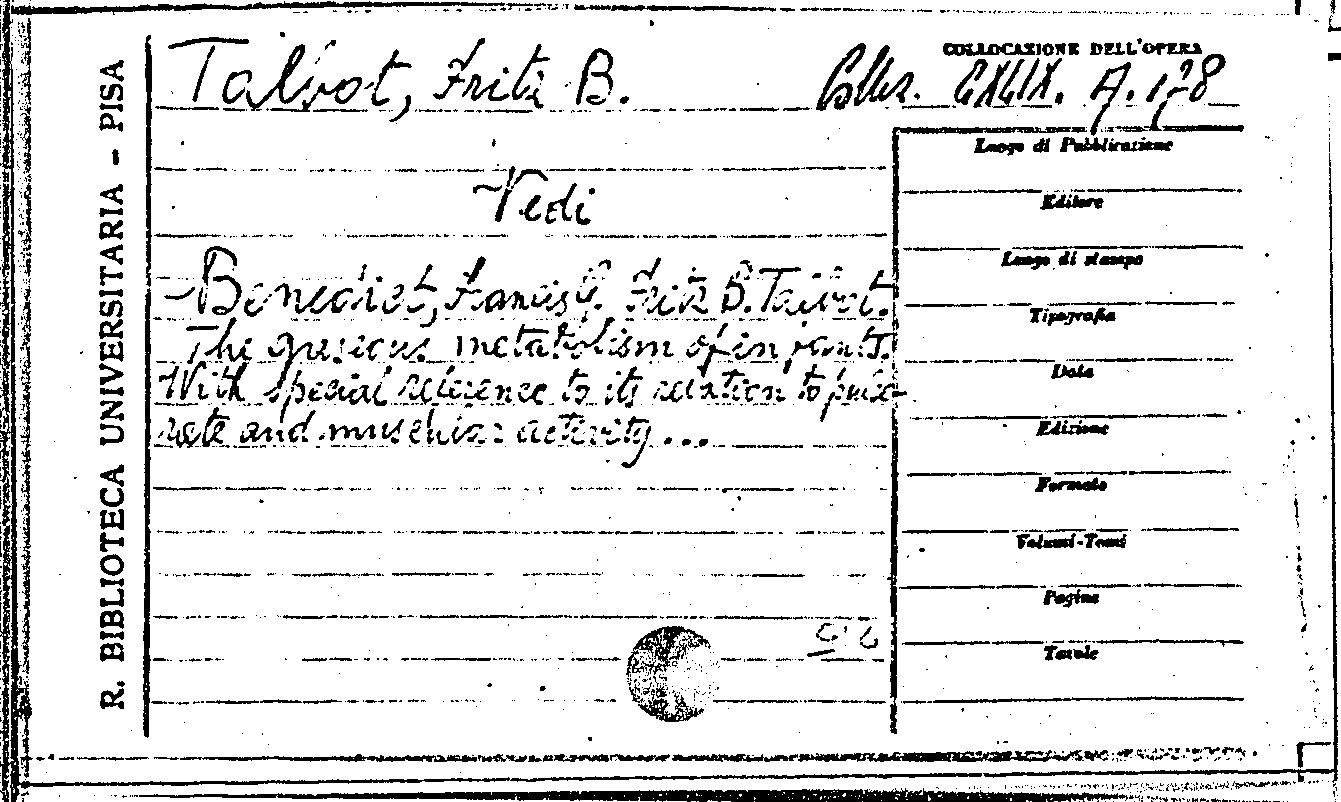 R. BIBLIOTECA UNIVERSITARIA - PISA
Talbot, Fritz B.
COLLOCAZIONE DELL'OPERA
Collez. CXLIX. A. 128
Vedi
Benedict, Francis G. Fritz B. Talbot.
The gaseous metabolism of infants.
With special reference to its relation to pulse-
rate and muscular activity...
Luogo di Pubblicazione
Editore
Luogo di stampa
Tipografia
Data
Edizione
Formato
Volumi-Tomi
Pagine
Tavole